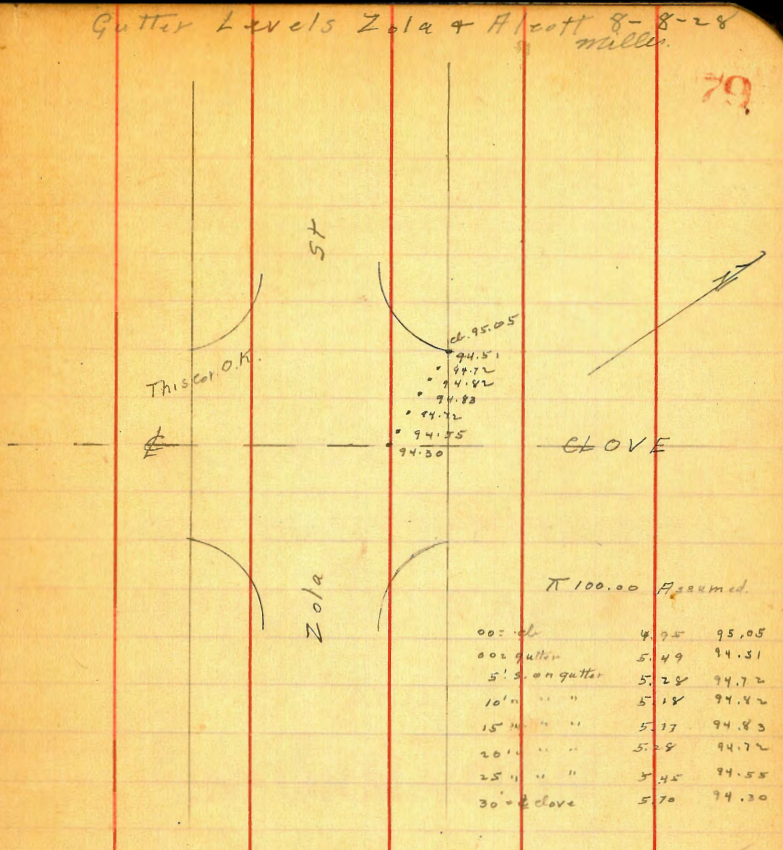 Gutter Levels Zola & Alcott 8-8-28
Miller.
79
St
N
cb. 95.05
94.51
94.72
94.82
94.83
94.72
94.55
94.30
This cor. O.K.
℄
CLOVE
Zola
π 100.00 Assumed.
00 = cb 4.95 95.05
00 = gutter 5.49 94.51
5' S. on gutter 5.28 94.72
10' " " " 5.18 94.82
15 " " " 5.17 94.83
20' " " " 5.28 94.72
25 " " " 5.45 94.55
30' = ℄ Clove 5.70 94.30